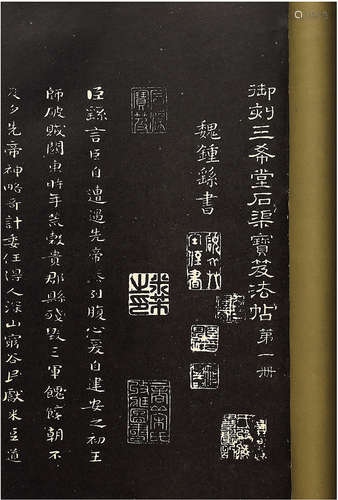 御刻三希堂石渠寶笈法帖 第一冊
魏鍾繇書
石渠寶笈
米芾之印
臣繇言臣自遭遇先帝忝列腹心爰自建安之初王
師破賊關東時年荒穀貴郡縣殘毀三軍餽饟朝不
及夕先帝神略奇計委任得人深山窮谷民獻米豆道